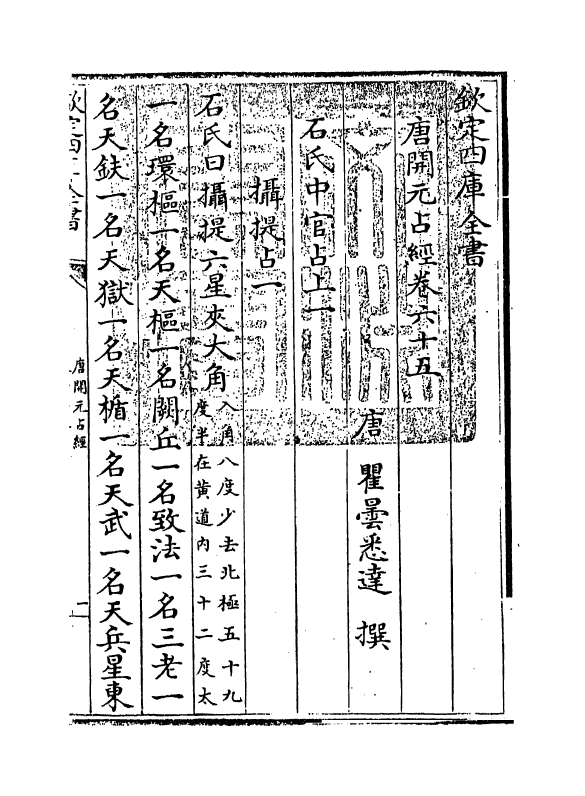 欽定四庫全書
唐開元占經卷六十五
唐 瞿曇悉達 撰
石氏中官占上一
攝提占一
石氏曰攝提六星夾大角入角八度少去北極五十九度半在黄道内三十二度太
一名環樞一名天樞一名闕丘一名致法一名三老一
名天鈇一名天獄一名天楯一名天武一名天兵星東
欽定四庫全書
唐開元占經
一